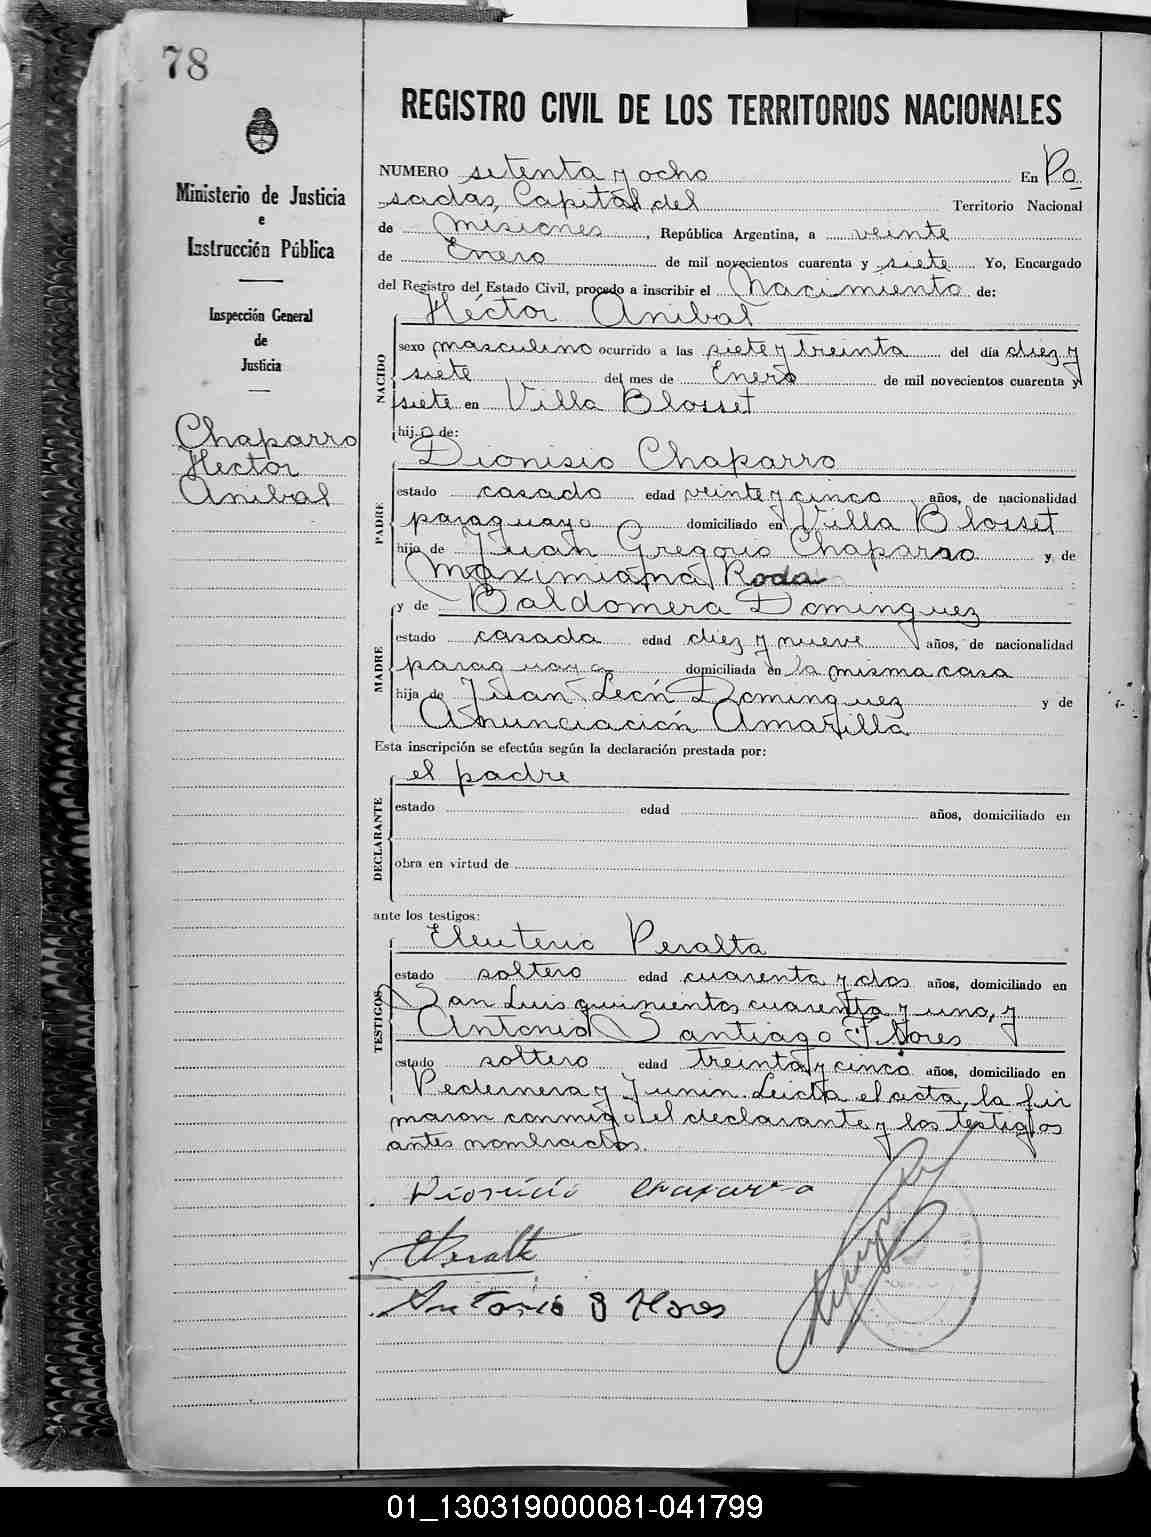 78
REGISTRO CIVIL DE LOS TERRITORIOS NACIONALES
Ministerio de Justicia
e
Instrucción Pública
Inspección General
de
Justicia
Chaparro
Hector
Anibal
NUMERO setenta y ocho En Po
sadas, Capital del Territorio Nacional
de Misiones, República Argentina, a veinte
de Enero de mil novecientos cuarenta y siete Yo, Encargado
del Registro del Estado Civil, procedo a inscribir el Nacimiento de:
Héctor Anibal
NACIDO
sexo masculino ocurrido a las siete y treinta del día diez y
siete del mes de Enero de mil novecientos cuarenta y
siete en Villa Blosset
hijo de:
Dionisio Chaparro
PADRE
estado casado edad veinte y cinco años, de nacionalidad
paraguayo domiciliado en Villa Blosset
hijo de Juan Gregorio Chaparro y de
Maximiana Roda
y de Baldomera Dominguez
MADRE
estado casada edad diez y nueve años, de nacionalidad
paraguaya domiciliada en la misma casa
hija de Juan León Dominguez y de
Anunciación Amarilla
Esta inscripción se efectúa según la declaración prestada por:
el padre
DECLARANTE
estado edad años, domiciliado en
obra en virtud de
ante los testigos:
Eleuterio Peralta
TESTIGOS
estado soltero edad cuarenta y dos años, domiciliado en
San Luis quinientos cuarenta y uno, y
Antonio Santiago Flores
estado soltero edad treinta y cinco años, domiciliado en
Pedernera y Junin. Leida el acta, la fir
maron conmigo el declarante y los testigos
antes nombrados.
Dionisio Chaparro
EPeralta
Antonio S Flores
01_130319000081-041799